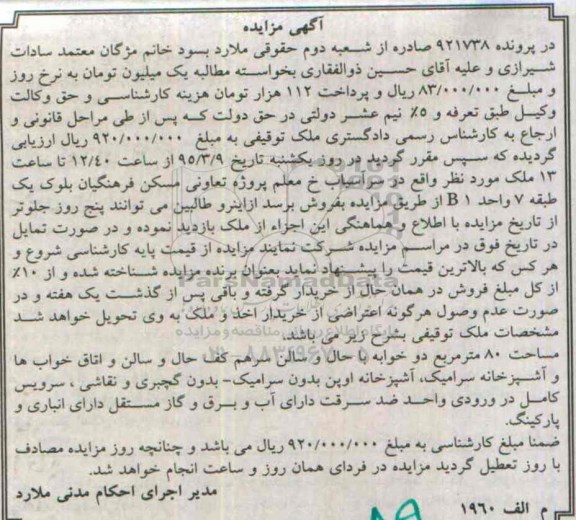 آگهی مزایده
در پرونده ۹۲۱۷۳۸ صادره از شعبه دوم حقوقی ملارد بسود خانم مژگان معتمد سادات
شیرازی و علیه آقای حسین ذوالفقاری بخواسته مطالبه یک میلیون تومان به نرخ روز
و مبلغ ۸۳/۰۰۰/۰۰۰ ریال و پرداخت ۱۱۲ هزار تومان هزینه کارشناسی و حق وکالت
وکیل طبق تعرفه و ۵٪ نیم عشر دولتی در حق دولت که پس از طی مراحل قانونی و
ارجاع به کارشناس رسمی دادگستری ملک توقیفی به مبلغ ۹۲۰/۰۰۰/۰۰۰ ریال ارزیابی
گردیده که سپس مقرر گردید در روز یکشنبه تاریخ ۹۵/۳/۹ از ساعت ۱۲/٤۰ تا ساعت
۱۳ ملک مورد نظر واقع در سرآسیاب خ معلم پروژه تعاونی مسکن فرهنگیان بلوک یک
طبقه ۷ واحد B ۱ از طریق مزایده بفروش برسد ازاینرو طالبین می توانند پنج روز جلوتر
از تاریخ مزایده با اطلاع و هماهنگی این اجراء از ملک بازدید نموده و در صورت تمایل
در تاریخ فوق در مراسم مزایده شرکت نمایند مزایده از قیمت پایه کارشناسی شروع و
هر کس که بالاترین قیمت را پیشنهاد نماید بعنوان برنده مزایده شناخته شده و از ۱۰٪
از کل مبلغ فروش در همان حال از خریدار گرفته و باقی پس از گذشت یک هفته و در
صورت عدم وصول هرگونه اعتراضی از خریدار اخذ و ملک به وی تحویل خواهد شد
مشخصات ملک توقیفی بشرح زیر می باشد.
مساحت ۸۰ مترمربع دو خوابه با حال و سالن سرهم کف حال و سالن و اتاق خواب ها
و آشپزخانه سرامیک، آشپزخانه اوپن بدون سرامیک- بدون گچبری و نقاشی ، سرویس
کامل در ورودی واحد ضد سرقت دارای آب و برق و گاز مستقل دارای انباری و
پارکینگ.
ضمنا مبلغ کارشناسی به مبلغ ۹۲۰/۰۰۰/۰۰۰ ریال می باشد و چنانچه روز مزایده مصادف
با روز تعطیل گردید مزایده در فردای همان روز و ساعت انجام خواهد شد.
مدیر اجرای احکام مدنی ملارد
م الف ۱۹۶۰
ParsNamadData
پایگاه اطلاع رسانی مناقصه و مزایده